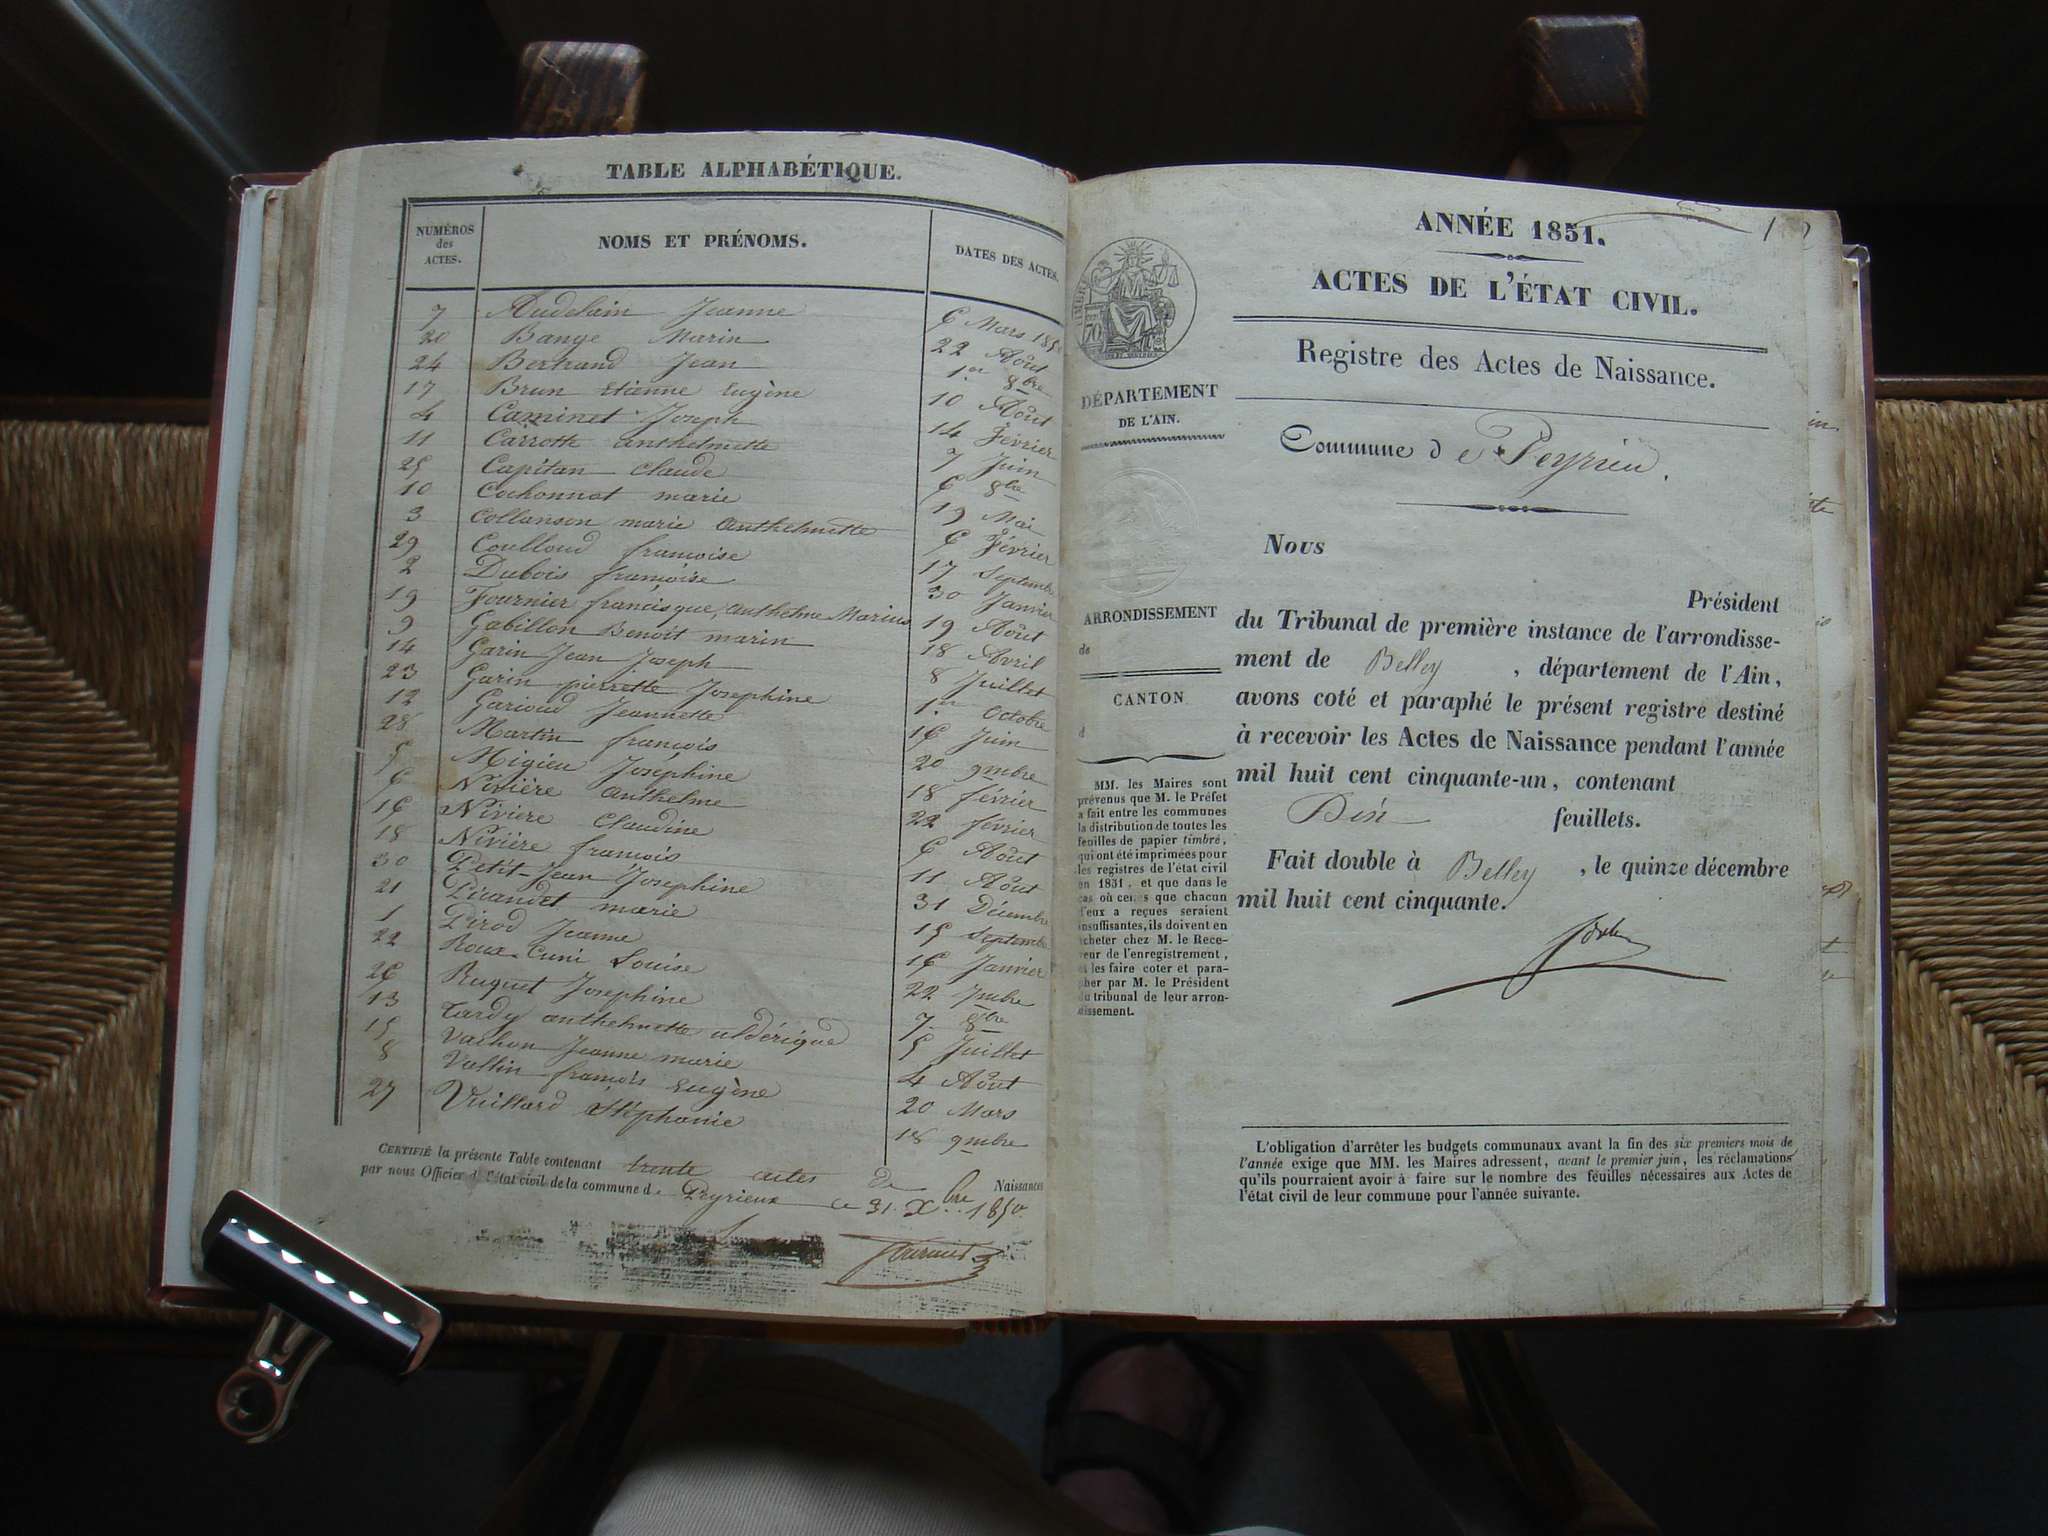 TABLE ALPHABÉTIQUE.
NUMÉROS des ACTES. NOMS ET PRÉNOMS. DATES DES ACTES.
7 Audelain Jeanne 6 Mars 185
20 Bange Marin 22 Août
24 Bertrand Jean 1er 8bre
17 Brun Etienne Eugène 10 Août
4 Caminet Joseph 14 Février
11 Carrotte anthelmette 7 Juin
25 Capitan claude 6 8bre
10 Cochonnat marie 19 Mai
3 Collanson marie anthelmette 6 Février
29 Coulloud françoise 17 Septembre
2 Dubois françoise 30 Janvier
19 Fournier francisque, anthelme Marius 19 Août
9 Gabillon Benoît marin 18 Avril
14 Garin Jean Joseph 8 Juillet
23 Garin pierrette Josephine 1er Octobre
12 Garioud Jeannette 16 Juin
28 Martin françois 20 9mbre
5 Migieu Joséphine 18 février
6 Nivière anthelme 22 février
16 Nivière Claudine 6 Août
18 Nivière françois 11 Août
30 Petit-Jean Josephine 31 Décembre
21 marie 15 Septembre
1 Pirod Jeanne 16 Janvier
22 Roux-Cuni Louise 22 7mbre
26 Ruguet Josephine 7 8bre
13 Tardy anthelmette uldérique 5 Juillet
15 Vachon Jeanne marie 4 Août
8 Vallin françois Eugène 20 Mars
27 Vuillard Stéphanie 18 9mbre
CERTIFIÉ la présente Table contenant trente actes de Naissances
par nous Officier d l'état civil de la commune d Peyrieux ce 31 Xbre 1850
ANNÉE 1851.
ACTES DE L'ÉTAT CIVIL.
Registre des Actes de Naissance.
TIMBRE
70
DÉPARTEMENT
DE L'AIN.
Commune d e Peyrieu.
ARRONDISSEMENT
de
CANTON
d
MM. les Maires sont
prévenus que M. le Préfet
a fait entre les communes
la distribution de toutes les
feuilles de papier timbré,
qui ont été imprimées pour
les registres de l'état civil
en 1851, et que dans le
cas où celles que chacun
d'eux a reçues seraient
insuffisantes, ils doivent en
acheter chez M. le Rece-
veur de l'enregistrement,
et les faire coter et para-
pher par M. le Président
du tribunal de leur arron-
dissement.
Nous
Président
du Tribunal de première instance de l'arrondisse-
ment de Belley , département de l'Ain,
avons coté et paraphé le présent registre destiné
à recevoir les Actes de Naissance pendant l'année
mil huit cent cinquante-un, contenant
feuillets.
Fait double à Belley , le quinze décembre
mil huit cent cinquante.
L'obligation d'arrêter les budgets communaux avant la fin des six premiers mois de
l'année exige que MM. les Maires adressent, avant le premier juin, les réclamations
qu'ils pourraient avoir à faire sur le nombre des feuilles nécessaires aux Actes de
l'état civil de leur commune pour l'année suivante.